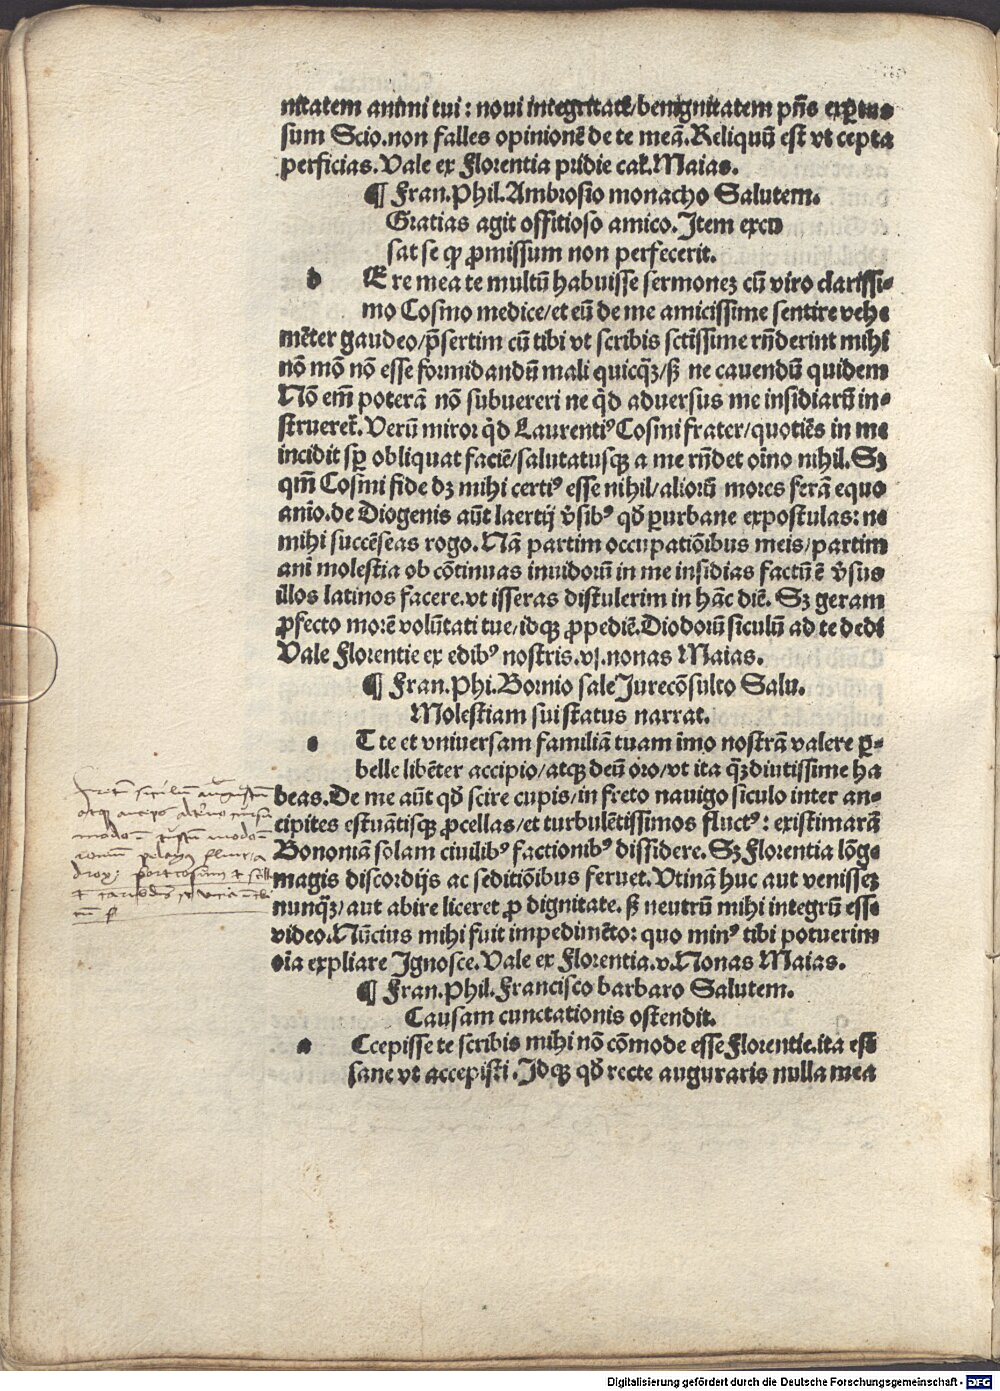 nitatem animi tui : noui integritatē/benignitatem p̄ñs exꝑtus
sum Scio.non falles opinionē de te meā.Reliquū est vt cepta
perficias.Vale ex Florentia pridie cal.Maias.
¶ Fran.Phil.Ambrosio monacho Salutem.
Gratias agit offitioso amico.Item excu
sat se ꝙ ꝓmissum non perfecerit.
d Ere mea te multū habuisse sermonez cū viro clarissi-
mo Cosmo medice/et eū de me amicissime sentire vehe
mēter gaudeo/p̄sertim cū tibi vt scribis sctissime rñderint mihi
nō mō nō esse formidandū mali quicqꝫ/ꝫ ne cauendū quidem
Nō em̄ poterā nō subuereri ne qd aduersus me insidiarū in-
strueret̄.Verū miror qd Laurentiꝰ Cosmi frater/quotiēs in me
incidit sꝑ obliquat faciē/salutatusqꝫ a me rñdet oīno nihil.Sꝫ
qm̄ Cosmi fide dꝫ mihi certiꝰ esse nihil/aliorū mores ferā equo
anīo.de Diogenis aūt laertij v̄sibꝰ qd̄ ꝑurbane expostulas: ne
mihi succēseas rogo.Nā partim occupatiōibus meis/partim
ani molestia ob cōtinuas inuidorū in me insidias factū ē v̄sus
illos latinos facere.vt isseras distulerim in hāc diē. Sꝫ geram
ꝓfecto morē volūtati tue/idqꝫ ꝓpediē.Diodorū siculū ad te dedi
Vale Florentie ex edibꝰ nostris.vj.nonas Maias.
¶ Fran.Phi.Bornio sale Jurecōsulto Salu.
Molestiam sui status narrat.
e T te et vniuersam familiā tuam imo nostrā valere ꝑ-
belle libēter accipio/atqꝫ deū oro/vt ita qꝫdiutissime ha
beas.De me aūt qd̄ scire cupis/in freto nauigo siculo inter an-
cipites estuātisqꝫ ꝓcellas/et turbulētissimos fluctꝰ : existimarā
Bononiā solam ciuilibꝰ factionibꝰ dissidere. Sꝫ Florentia lōge
magis discordijs ac seditiōibus feruet.Vtinā huc aut venissez
nunqꝫ/aut abire liceret ꝓ dignitate. ꝫ neutrū mihi integrū esse
video.Nūcius mihi fuit impedimēto: quo minꝰ tibi potuerim
oīa explicare Ignosce.Vale ex Florentia.v.Nonas Maias.
¶ Fran.Phil.Francisco barbaro Salutem.
Causam cunctationis ostendit.
a Ccepisse te scribis mihi nō cōmode esse Florentie.ita est
sane vt accepisti.Idqꝫ qd̄ recte auguraris nulla mea
Digitalisierung gefördert durch die Deutsche Forschungsgemeinschaft - DFG